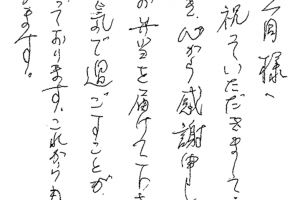 様へ
祝っていただきまして、
き、心から感謝申し
お弁当を届けて下さ
気で過ごすことが
っております。これからも
ます。